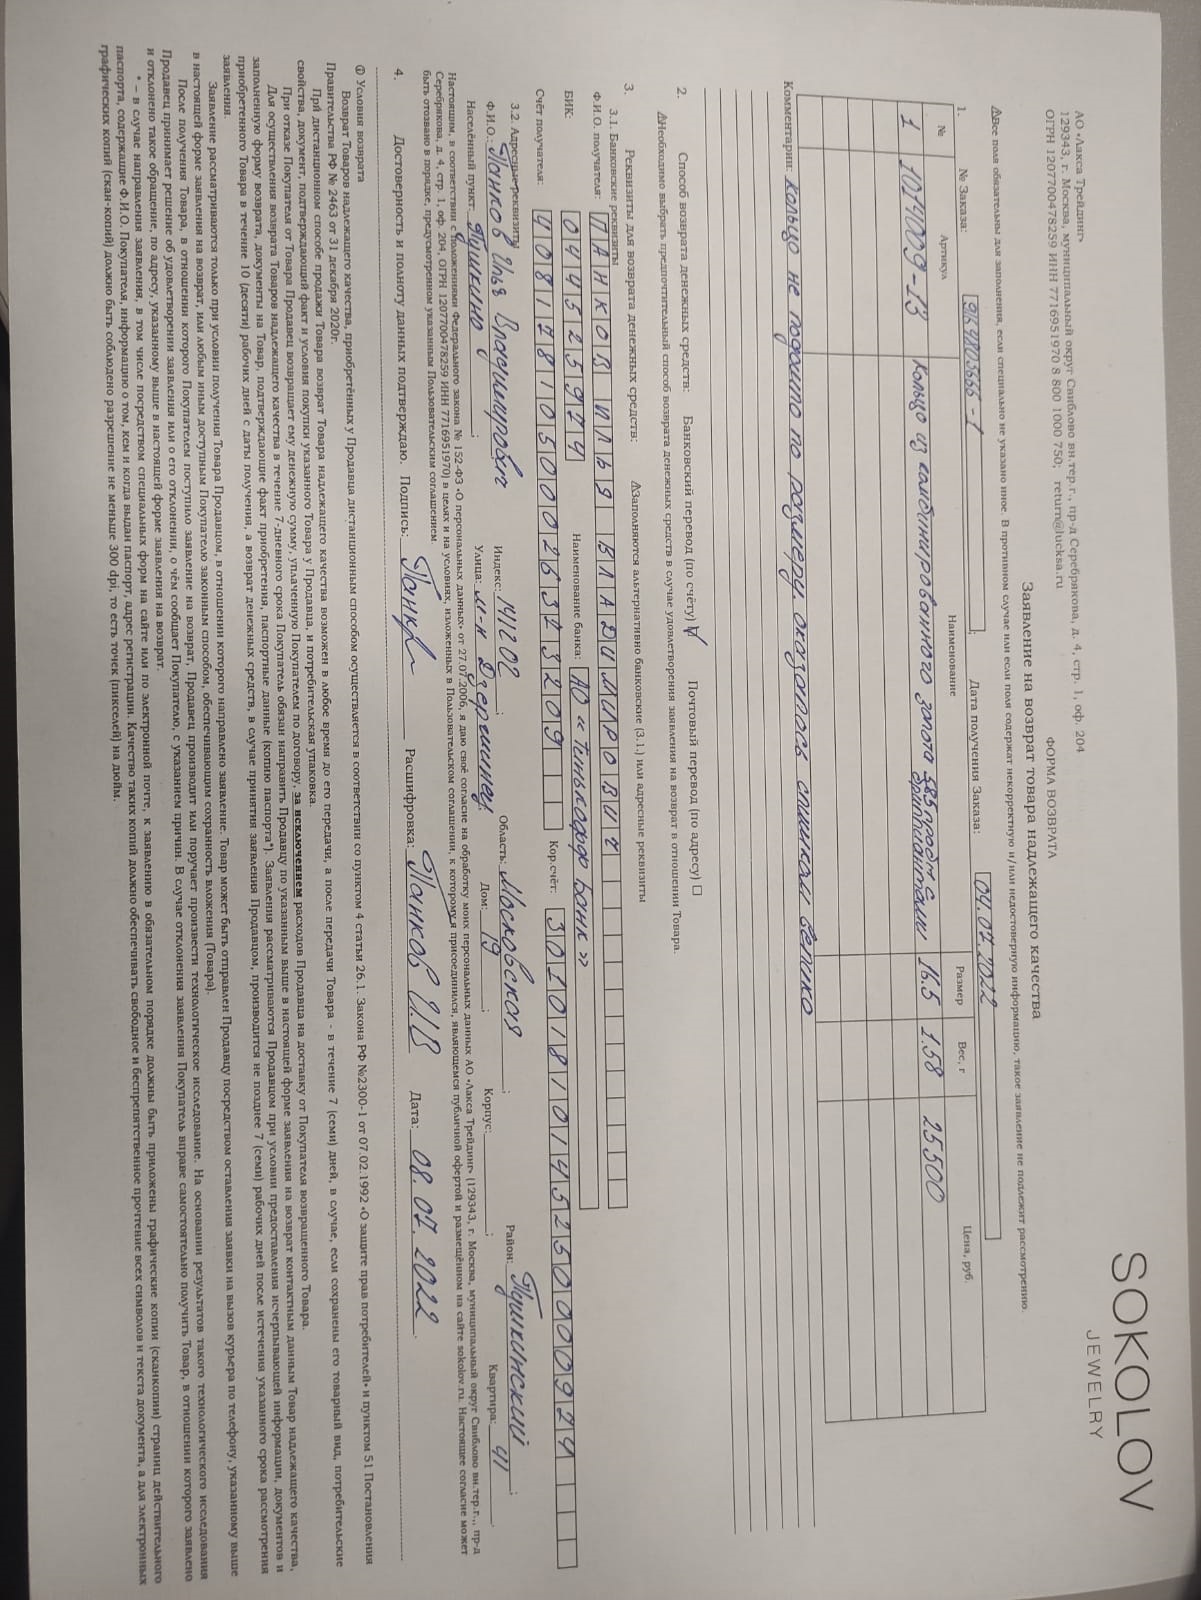 SOKOLOV
JEWELRY
АО «Лакса Трейдинг»
129343, г. Москва, муниципальный округ Свиблово вн.тер.г., пр-д Серебрякова, д. 4, стр. 1, оф. 204
ОГРН 1207700478259 ИНН 7716951970 8 800 1000 750; return@lucksa.ru
ФОРМА ВОЗВРАТА
Заявление на возврат товара надлежащего качества
⚠Все поля обязательны для заполнения, если специально не указано иное. В противном случае или если поля содержат некорректную и/или недостоверную информацию, такое заявление не подлежит рассмотрению.
1. № Заказа: ; Дата получения Заказа: 04.07.2022
№ Артикул Наименование Размер Вес, г Цена, руб.
1 1014009-13 Кольцо из комбинированного золота 585 пробы с бриллиантами 16.5 1.58 25500
Комментарии: Кольцо не подошло по размеру. оказалось слишком велико
2. Способ возврата денежных средств: Банковский перевод (по счёту) ☑ Почтовый перевод (по адресу) ☐
⚠Необходимо выбрать предпочтительный способ возврата денежных средств в случае удовлетворения заявления на возврат в отношении Товара.
3. Реквизиты для возврата денежных средств: ⚠Заполняются альтернативно банковские (3.1.) или адресные реквизиты
3.1. Банковские реквизиты
Ф.И.О. получателя: ПАНКОВ ИЛЬЯ ВЛАДИМИРОВИЧ
БИК: 044525974 Наименование банка: АО «Тинькофф Банк»
Счёт получателя: 40817810500026373209 Кор.счёт: 30101810145250000974
3.2. Адресные реквизиты
Ф.И.О.: Панков Илья Владимирович Индекс: 141202 ; Область: Московская ; Район: Пушкинский ;
Населённый пункт: Пушкино ; Улица: м-н Дзержинец ; Дом: 19 ; Корпус: ; Квартира: 41 .
Настоящим, в соответствии с положениями Федерального закона № 152-ФЗ «О персональных данных» от 27.07.2006, я даю своё согласие на обработку моих персональных данных АО «Лакса Трейдинг» (129343, г. Москва, муниципальный округ Свиблово вн.тер.г.,, пр-д
Серебрякова, д. 4, стр. 1, оф. 204, ОГРН 1207700478259 ИНН 7716951970) в целях и на условиях, изложенных в Пользовательском соглашении, к которому я присоединился, являющемся публичной офертой и размещённом на сайте sokolov.ru. Настоящее согласие может
быть отозвано в порядке, предусмотренном указанным Пользовательским соглашением.
4. Достоверность и полноту данных подтверждаю. Подпись: Расшифровка: Панков И.В Дата: 08.07.2022 .
ⓘ Условия возврата
Возврат Товаров надлежащего качества, приобретённых у Продавца дистанционным способом осуществляется в соответствии со пунктом 4 статьи 26.1. Закона РФ №2300-1 от 07.02.1992 «О защите прав потребителей» и пунктом 51 Постановления
Правительства РФ № 2463 от 31 декабря 2020г.
При дистанционном способе продажи Товара возврат Товара надлежащего качества возможен в любое время до его передачи, а после передачи Товара - в течение 7 (семи) дней, в случае, если сохранены его товарный вид, потребительские
свойства, документ, подтверждающий факт и условия покупки указанного Товара у Продавца, и потребительская упаковка.
При отказе Покупателя от Товара Продавец возвращает ему денежную сумму, уплаченную Покупателем по договору, за исключением расходов Продавца на доставку от Покупателя возвращенного Товара.
Для осуществления возврата Товаров надлежащего качества в течение 7-дневного срока Покупатель обязан направить Продавцу по указанным выше в настоящей форме заявления на возврат контактным данным Товар надлежащего качества,
заполненную форму возврата, документы на Товар, подтверждающие факт приобретения, паспортные данные (копию паспорта*). Заявления рассматриваются Продавцом при условии предоставления исчерпывающей информации, документов и
приобретенного Товара в течение 10 (десяти) рабочих дней с даты получения, а возврат денежных средств, в случае принятия заявления Продавцом, производится не позднее 7 (семи) рабочих дней после истечения указанного срока рассмотрения
заявления.
Заявление рассматриваются только при условии получения Товара Продавцом, в отношении которого направлено заявление. Товар может быть отправлен Продавцу посредством оставления заявки на вызов курьера по телефону, указанному выше
в настоящей форме заявления на возврат, или любым иным доступным Покупателю законным способом, обеспечивающим сохранность вложения (Товара).
После получения Товара, в отношении которого Покупателем поступило заявление на возврат, Продавец производит или поручает произвести технологическое исследование. На основании результатов такого технологического исследования
Продавец принимает решение об удовлетворении заявления или о его отклонении, о чём сообщает Покупателю, с указанием причин. В случае отклонения заявления Покупатель вправе самостоятельно получить Товар, в отношении которого заявлено
и отклонено такое обращение, по адресу, указанному выше в настоящей форме заявления на возврат.
* – в случае направления заявления, в том числе посредством специальных форм на сайте или по электронной почте, к заявлению в обязательном порядке должны быть приложены графические копии (сканкопии) страниц действительного
паспорта, содержащие Ф.И.О. Покупателя, информацию о том, кем и когда выдан паспорт, адрес регистрации. Качество таких копий должно обеспечивать свободное и беспрепятственное прочтение всех символов и текста документа, а для электронных
графических копий (скан-копий) должно быть соблюдено разрешение не меньше 300 dpi, то есть точек (пикселей) на дюйм.